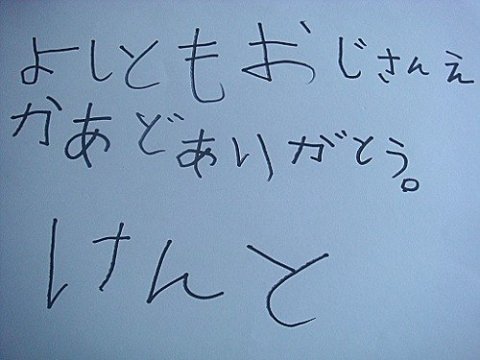 よしともおじさんえ
かあどありがとう。
けんと